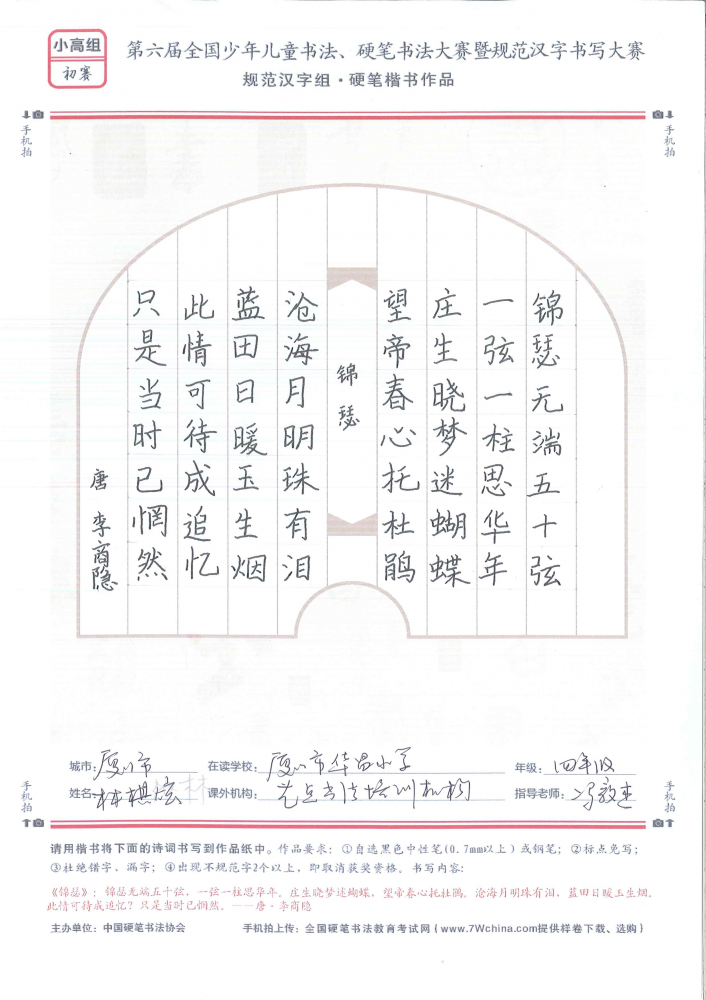 小高组
初赛
第六届全国少年儿童书法、硬笔书法大赛暨规范汉字书写大赛
规范汉字组·硬笔楷书作品
手机拍
手机拍
锦瑟无端五十弦
一弦一柱思华年
庄生晓梦迷蝴蝶
望帝春心托杜鹃
锦瑟
沧海月明珠有泪
蓝田日暖玉生烟
此情可待成追忆
只是当时已惘然
唐 李商隐
城市：厦门市 在读学校：厦门市华昌小学 年级：四年级
姓名：林棋 课外机构：书法培训机构 指导老师：
手机拍
手机拍
请用楷书将下面的诗词书写到作品纸中。作品要求：①自选黑色中性笔(0.7mm以上)或钢笔；②标点免写；
③杜绝错字、漏字；④出现不规范字2个以上，即取消获奖资格。书写内容：
《锦瑟》：锦瑟无端五十弦，一弦一柱思华年。庄生晓梦迷蝴蝶，望帝春心托杜鹃。沧海月明珠有泪，蓝田日暖玉生烟。
此情可待成追忆？只是当时已惘然。——唐·李商隐
主办单位：中国硬笔书法协会 手机拍上传：全国硬笔书法教育考试网{www.7Wchina.com提供样卷下载、选购}